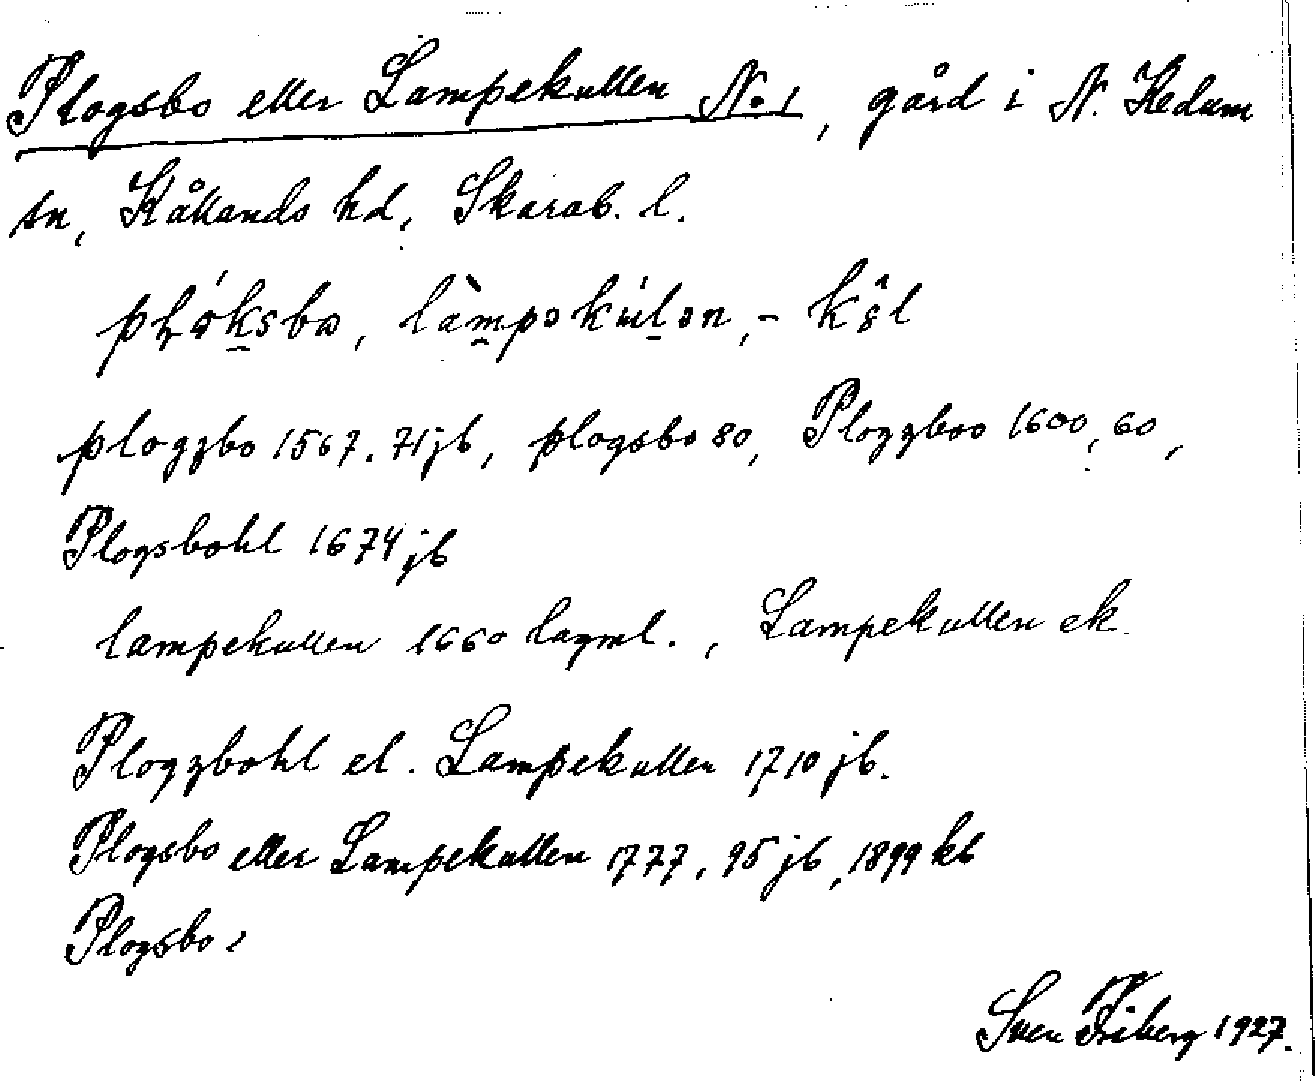 Plogsbo eller Lampekullen No 1, gård i N. Kedum
sn, Kållands hd, Skarab. l.
lampekullen 1660 lagml., Lampekullen ek.
plogzbo 1567. 71 jb, plogsbo 80, Plogzboo 1600, 60,
Plogsbohl 1674 jb
Plogzbohl el. Lampekullen 1710 jb.
Plogsbo eller Lampekullen 1777, 95 jb, 1899 kb
Plogsbo
Sven Friberg 1927.